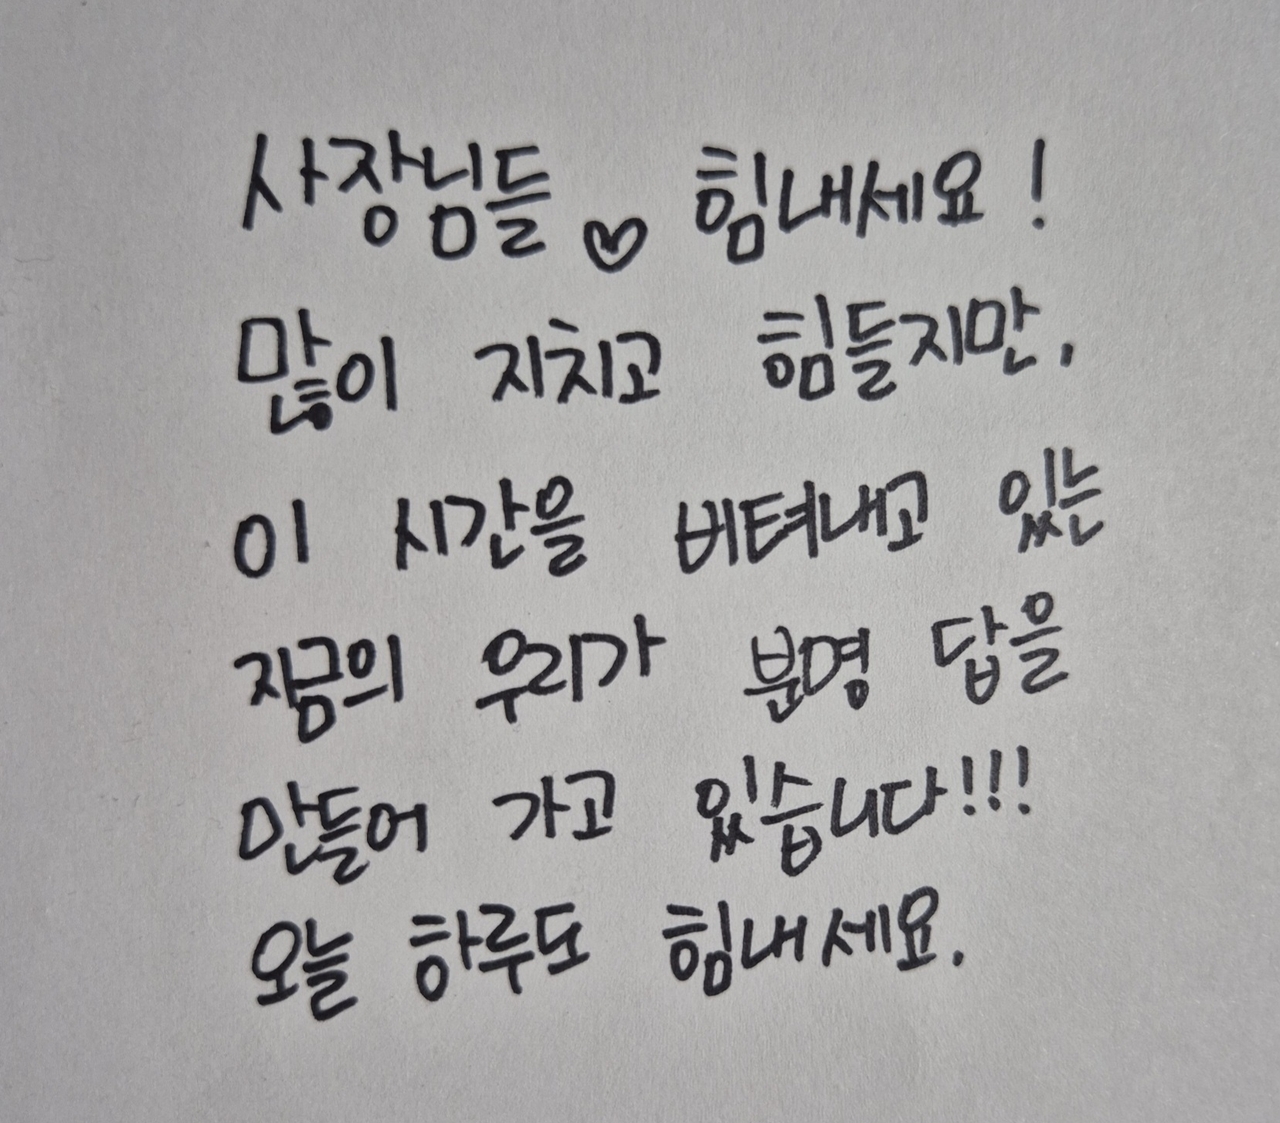 사장님들♡ 힘내세요!
많이 지치고 힘들지만,
이 시간을 버텨내고 있는
지금의 우리가 분명 답을
만들어 가고 있습니다!!!
오늘 하루도 힘내세요.